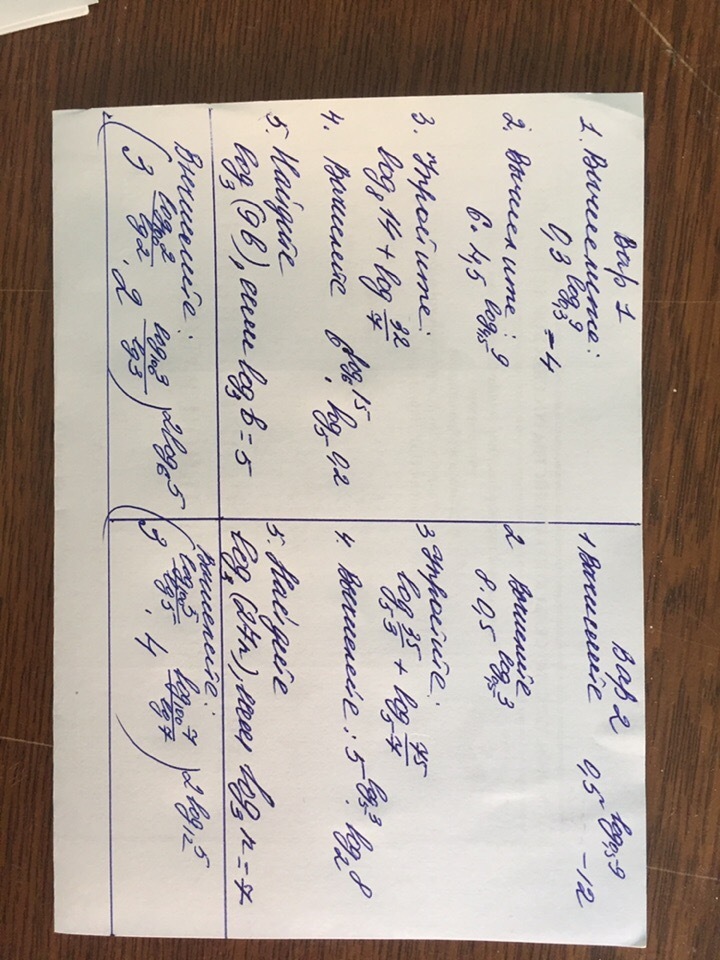 Вар 1
1. Вычислите:
0,3^{log_{0,3} 9} - 4
2. Вычислите:
6 · 4,5^{log_{4,5} 9}
3. Упростите:
log_8 14 + log_8 32/7
4. Вычислите 6^{log_6 15} · log_5 0,2
5. Найдите
log_3 (9b), если log_3 b = 5
Вычислите:
(3^{log_{100} 2 / lg 2} · 2^{log_{100} 3 / lg 3})^{2 log_6 5}
Вар 2
1 Вычислите 0,5^{log_{0,5} 9} - 12
2 Вычислите
8 · 0,5^{log_{0,5} 3}
3 Упростите:
log_5 35/3 + log_5 75/7
4. Вычислите: 5^{log_5 3} · log_2 8
5. Найдите
log_3 (27n), если log_3 n = 7
Вычислите:
(3^{log_{100} 5 / lg 5} · 4^{log_{100} 7 / lg 7})^{2 log_{12} 5}